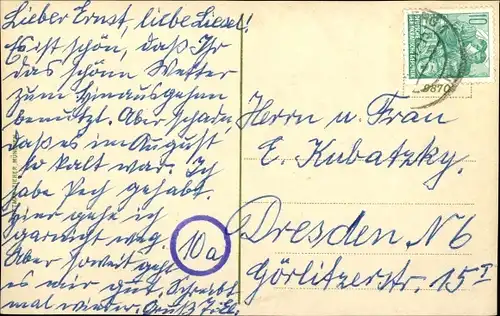 Lieber Ernst, liebe Liesel!
Es ist schön, daß Ihr
das schöne Wetter
zum Hinausgehen
benutzt. Aber schade,
daß es im August
so kalt war. Ich
habe Pech gehabt.
Hier gehe ich
garnicht weg.
Aber soweit geht
es mir gut. Schreibt
mal wieder. Gruß
10a
10
9870
Herrn u. Frau
E. Kubatzky.
Dresden N6
Görlitzerstr. 15 I